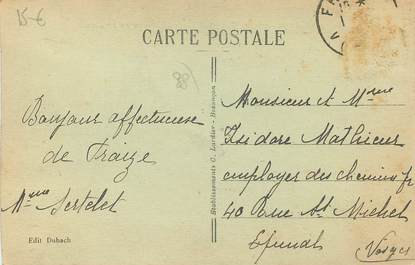 15 €
CARTE POSTALE
88
Bonjour affectueuse
de Fraize
Mme Sertelet
Edit Dubach
Etablissements C. Lardier - Besançon
Monsieur et Mme
Isidore Mathieu
employer des chemins fr
40 Rue St Michel
Epinal
Vosges